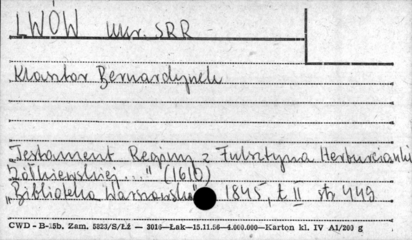 LWÓW Ukr. SRR
Klasztor Bernardynek
"Testament Reginy z Fulsztyna Herburcianki
Żółkiewskiej..." (1610)
"Biblioteka Warszawska" 1845, t. II str. 449
CWD - B-15b. Zam. 5823/S/Łż — 3010—Łak—15.11.56—4.000.000—Karton kl. IV A1/200 g